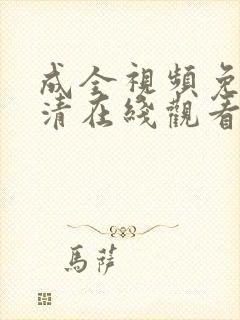 成全視頻免
清在綫觀看
馬薩